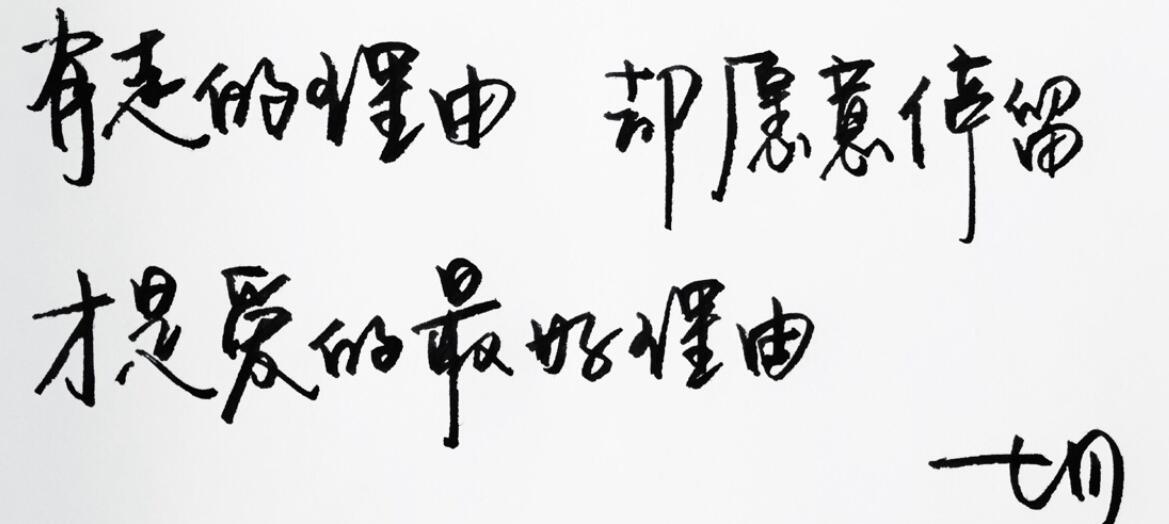 有走的理由 却愿意停留
才是爱的最好理由